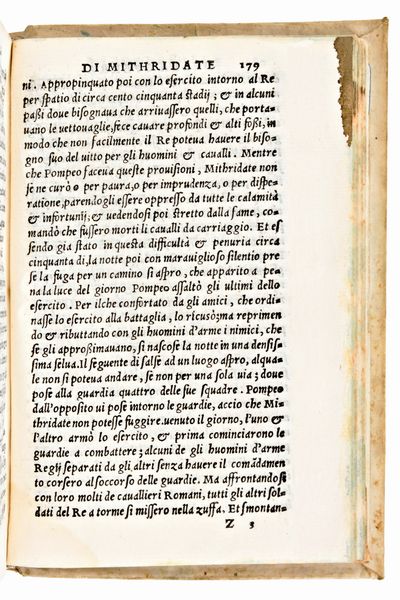 DI MITHRIDATE 179
ni. Appropinquato poi con lo esercito intorno al Re
per spatio di circa cento cinquanta stadij; & in alcuni
paßi doue bisognaua che arriuassero quelli, che porta-
uano le uettouaglie, fece cauare profondi & alti foßi, in
modo che non facilmente il Re poteua hauere il biso-
gno suo del uitto per gli huomini & caualli. Mentre
che Pompeo faceua queste prouisioni, Mithridate non
se ne curò o per paura, o per imprudenza, o per dispe-
ratione, parendogli essere oppresso da tutte le calamità
& infortunij; & uedendosi poi stretto dalla fame, co-
mandò che fussero morti li caualli da carriaggio. Et es
sendo gia stato in questa difficultà & penuria circa
cinquanta di, la notte poi con marauiglioso silentio pre
se la fuga per un camino si aspro, che apparito a pe-
na la luce del giorno Pompeo assaltò gli ultimi dello
esercito. Per ilche confortato da gli amici, che ordi-
nasse lo esercito alla battaglia, lo ricusò; ma reprimen
do & ributtando con gli huomini d'arme i nimici, che
se gli approßimauano, si nascose la notte in una densis-
sima selua. Il seguente dì salse ad un luogo aspro, al qua-
le non si poteua andare, se non per una sola uia; doue
pose alla guardia quattro delle sue squadre. Pompeo
dall'opposito ui pose intorno le guardie, accio che Mi-
thridate non potesse fuggire. uenuto il giorno, l'uno &
l'altro armò lo esercito, & prima cominciarono le
guardie a combattere; alcuni de gli huomini d'arme
Regij separati da gli altri senza hauere il comãdamen
to corsero al soccorso delle guardie. Ma affrontandosi
con loro molti de cauallieri Romani, tutti gli altri sol-
dati del Re a torme si missero nella zuffa. Et smontan-
Z 3